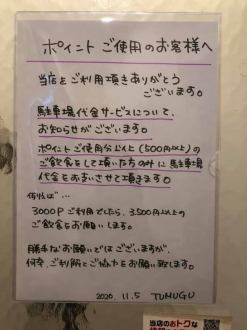 ポイントご使用のお客様へ
当店をご利用頂きありがとう
ございます。
駐車場代金サービスについて、
お知らせがございます。
ポイントご使用分以上(500円以上)の
ご飲食をして頂いた方のみに駐車場
代金をお支払させて頂きます。
例えば…
3000Pご利用でしたら、3,500円以上の
ご飲食をお願いします。
勝手なお願いではございますが、
何卒、ご利解とご協力をお願い致します。
2020. 11.5 TUMUGU
当店のおトクな